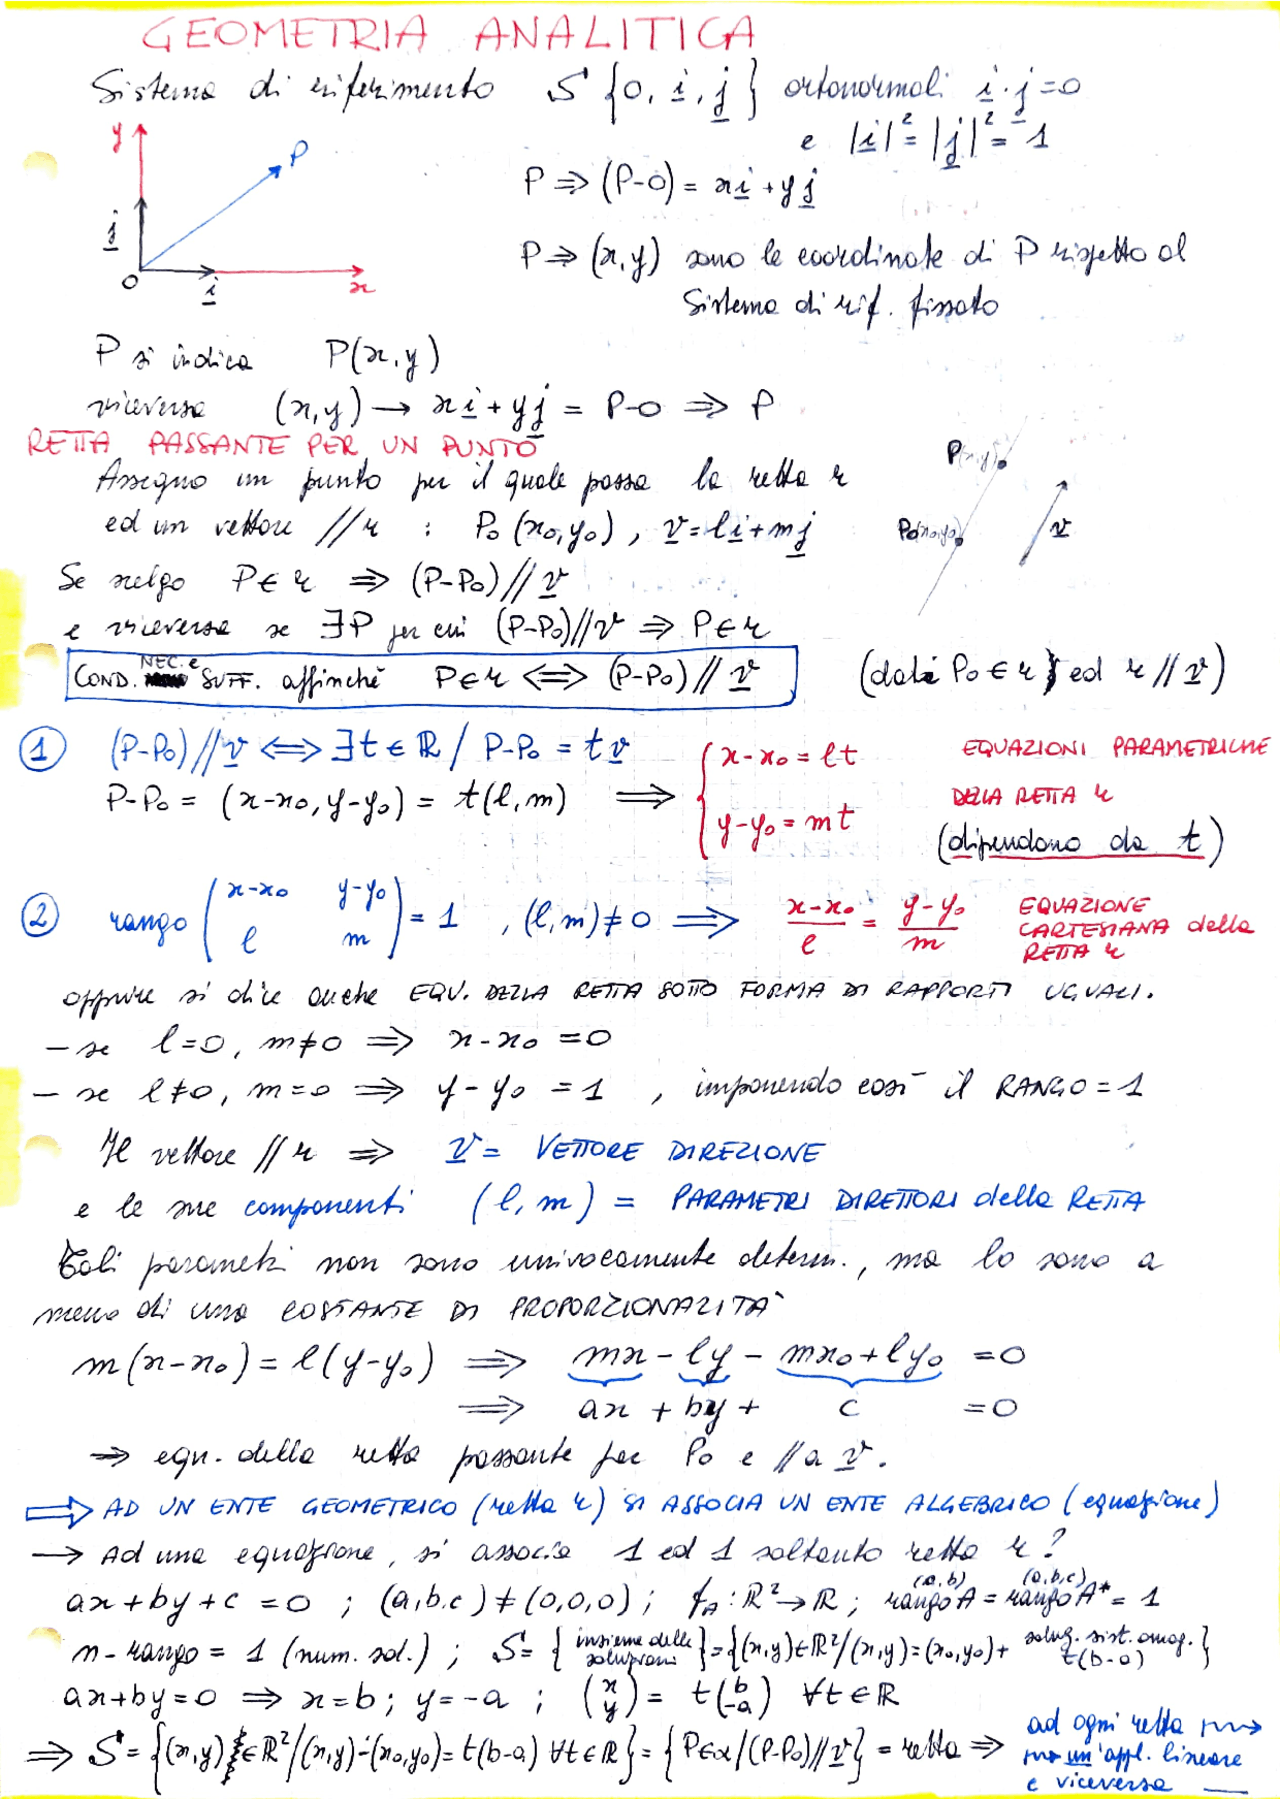 GEOMETRIA ANALITICA
Sistema di riferimento S {O, i, j} ortonormali i · j = 0
e |i|² = |j|² = 1
y
P
j
O
i
x
P ⇒ (P-O) = xi + yj
P ⇒ (x,y) sono le coordinate di P rispetto al
Sistema di rif. fissato
P si indica P(x,y)
viceversa (x,y) → xi + yj = P-O ⇒ P
RETTA PASSANTE PER UN PUNTO
Assegno un punto per il quale passa la retta r
ed un vettore // r : P₀(x₀,y₀), v = li + mj
P(x,y)
P₀(x₀,y₀)
v
Se scelgo P ∈ r ⇒ (P-P₀) // v
e viceversa se ∃P per cui (P-P₀) // v ⇒ P ∈ r
COND. NEC. e SUFF. affinchè P ∈ r ⟺ (P-P₀) // v (dati P₀ ∈ r ed r // v)
① (P-P₀) // v ⟺ ∃t ∈ ℝ / P-P₀ = tv
P-P₀ = (x-x₀, y-y₀) = t(l,m) ⇒ { x-x₀ = lt
y-y₀ = mt
EQUAZIONI PARAMETRICHE
DELLA RETTA r
(dipendono da t)
② rango ( x-x₀ y-y₀
l m ) = 1 , (l,m) ≠ 0 ⇒ (x-x₀)/l = (y-y₀)/m
EQUAZIONE
CARTESIANA della
RETTA r
oppure si dice anche EQU. DELLA RETTA SOTTO FORMA DI RAPPORTI UGUALI.
- se l=0, m≠0 ⇒ x-x₀ = 0
- se l≠0, m=0 ⇒ y-y₀ = 1 , imponendo così il RANGO = 1
Il vettore // r ⇒ v = VETTORE DIREZIONE
e le sue componenti (l,m) = PARAMETRI DIRETTORI della RETTA
Tali parametri non sono univocamente determ., ma lo sono a
meno di una COSTANTE DI PROPORZIONALITA'
m(x-x₀) = l(y-y₀) ⇒ mx - ly - mx₀ + ly₀ = 0
⇒ ax + by + c = 0
⇒ equ. della retta passante per P₀ e // a v.
⇒ AD UN ENTE GEOMETRICO (retta r) SI ASSOCIA UN ENTE ALGEBRICO (equazione)
→ Ad una equazione, si associa 1 ed 1 soltanto retta r?
ax + by + c = 0 ; (a,b,c) ≠ (0,0,0) ; f_A : ℝ² → ℝ ; rango A (a,b) = rango A* (a,b,c) = 1
n - rango = 1 (num. sol.) ; S = { insieme delle soluzioni } = {(x,y) ∈ ℝ² / (x,y) = (x₀,y₀) + soluz. sist. omog. t(b-a) }
ax + by = 0 ⇒ x = b ; y = -a ; (x y) = t (b -a) ∀t ∈ ℝ
⇒ S = {(x,y) ∈ ℝ² / (x,y) - (x₀,y₀) = t(b-a) ∀t ∈ ℝ} = {P ∈ α / (P-P₀) // v} = retta ⇒
ad ogni retta
un' appl. lineare
e viceversa